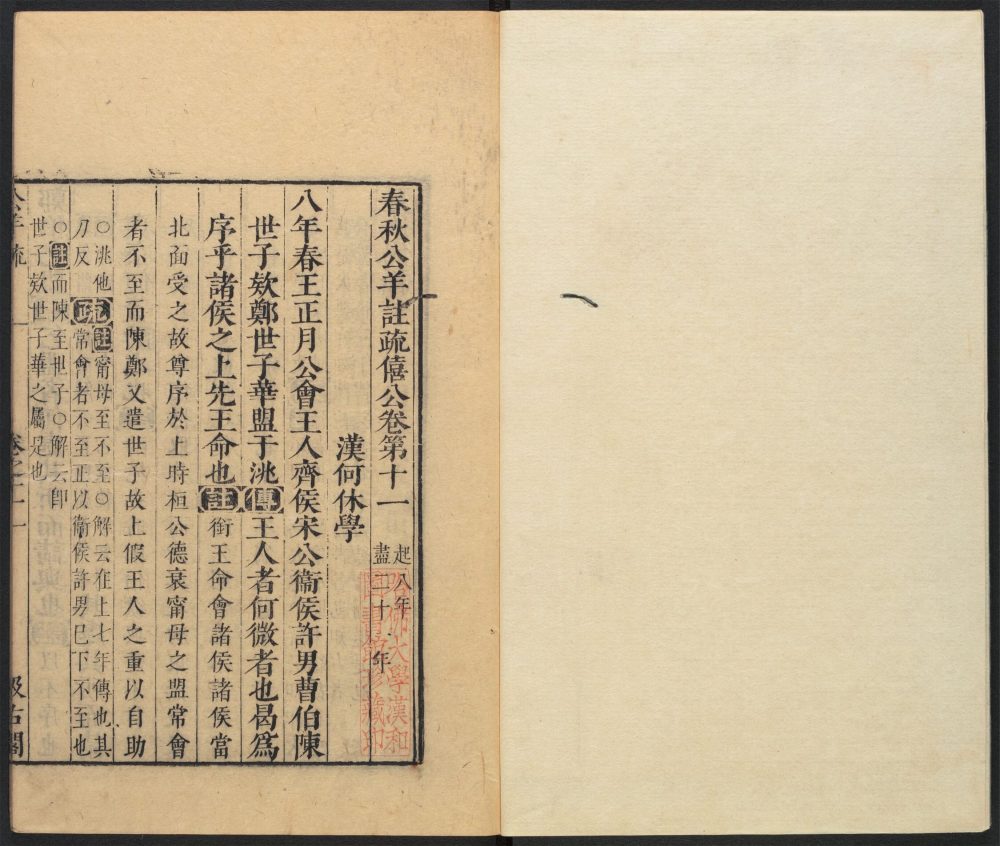 春秋公羊註疏僖公卷第十一
起八年
盡二十一年
漢何休學
八年春王正月公會王人齊侯宋公衞侯許男曹伯陳
世子欵鄭世子華盟于洮傳王人者何微者也曷爲
序乎諸侯之上先王命也註銜王命會諸侯諸侯當
北面受之故尊序於上時桓公德衰甯母之盟常會
者不至而陳鄭又遣世子故上假王人之重以自助
○洮他
刀反
疏註甯母至不至○解云在上七年傳也其
常會者不至正以衞侯許男已下不至也
○註而陳至世子○解云卽
世子欵世子華之屬是也
公羊疏
卷之十一
汲古閣
哈佛大學漢和
圖書館珍藏印